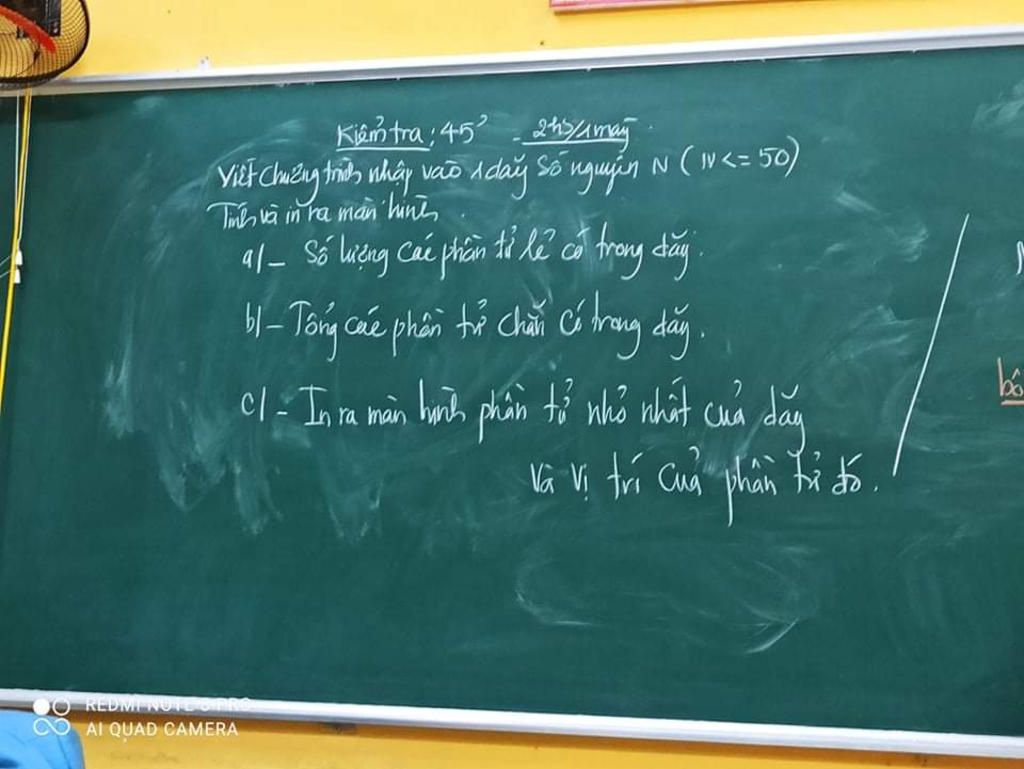 Kiểm tra: 45' - 2hs/1 máy
Viết chương trình nhập vào 1 dãy số nguyên N (N <= 50)
Tính và in ra màn hình
a/- Số lượng các phần tử lẻ có trong dãy.
b/- Tổng các phần tử chẵn có trong dãy.
c/- In ra màn hình phần tử nhỏ nhất của dãy
Và vị trí của phần tử đó.
bô
REDMI NOTE 8 PRO
AI QUAD CAMERA